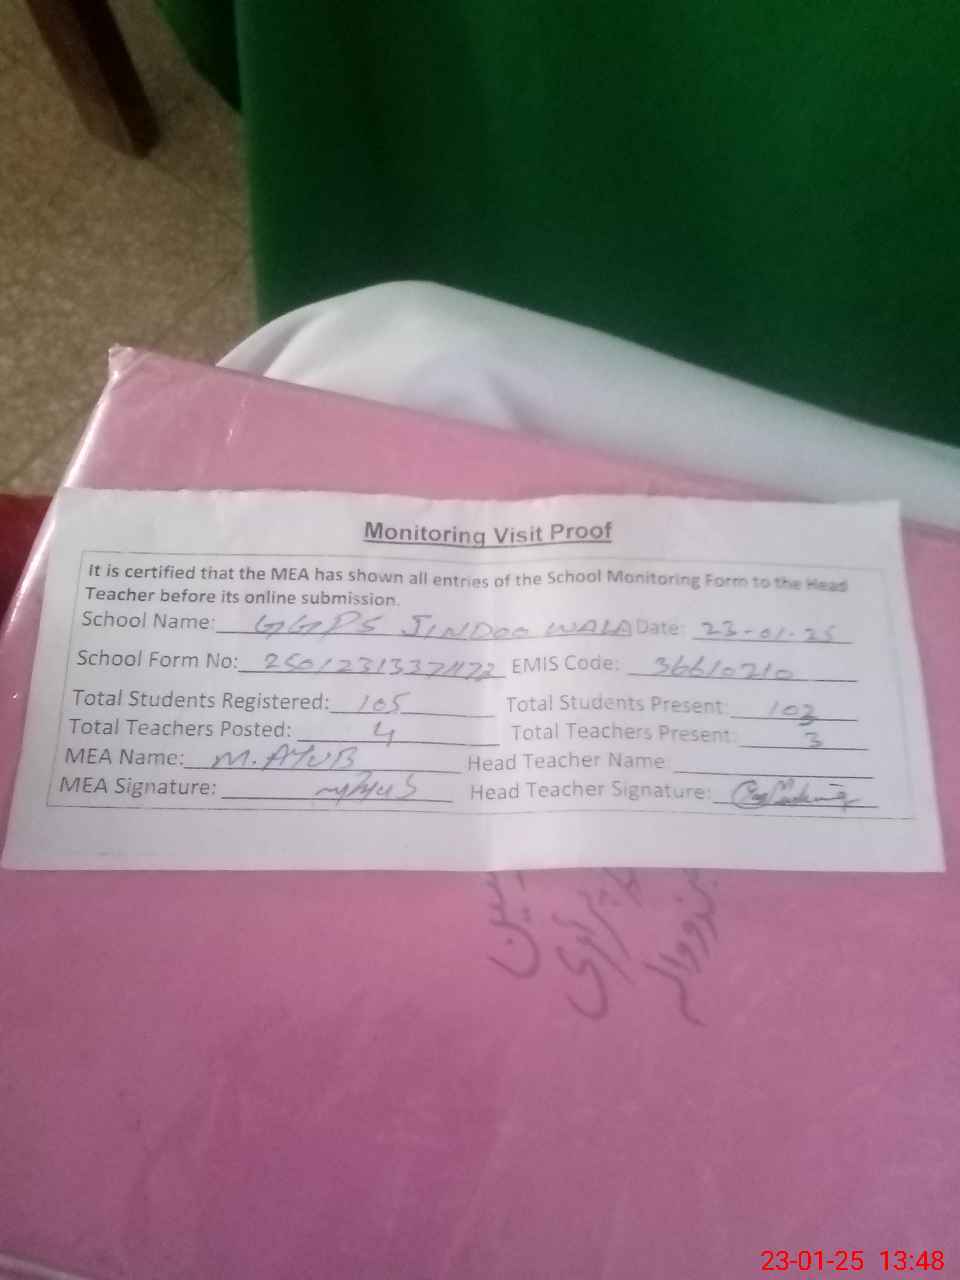 Monitoring Visit Proof
It is certified that the MEA has shown all entries of the School Monitoring Form to the Head
Teacher before its online submission.
School Name: GGPS JINDOO WALA Date: 23-01-25
School Form No: EMIS Code: 36610210
Total Students Registered: 105 Total Students Present: 103
Total Teachers Posted: 4 Total Teachers Present: 3
MEA Name: M. AYUB Head Teacher Name
MEA Signature: Head Teacher Signature:
23-01-25 13:48